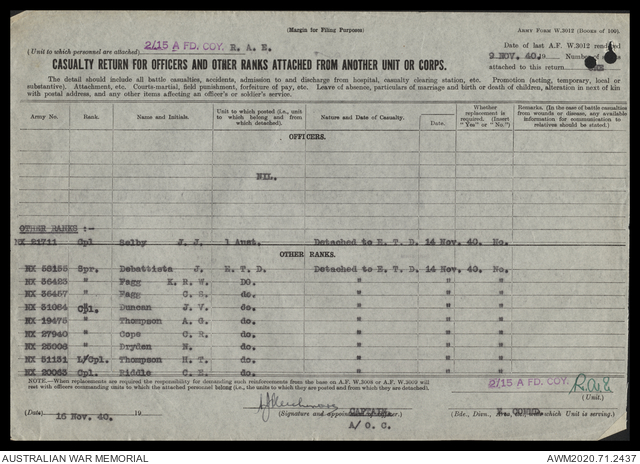 (Margin for Filing Purposes)
ARMY FORM W.3012 (BOOKS OF 100).
2/15 A FD. COY. R. A. E.
(Unit to which personnel are attached)
Date of last A.F. W.3012 rendered
2 NOV. 40. 19 Number of
attached to this return
CASUALTY RETURN FOR OFFICERS AND OTHER RANKS ATTACHED FROM ANOTHER UNIT OR CORPS.
The detail should include all battle casualties, accidents, admission to and discharge from hospital, casualty clearing station, etc. Promotion (acting, temporary, local or
substantive). Attachment, etc. Courts-martial, field punishment, forfeiture of pay, etc. Leave of absence, particulars of marriage and birth or death of children, alteration in next of kin
with postal address, and any other items affecting an officer's or soldier's service.
Army No. Rank. Name and Initials. Unit to which posted (i.e., unit to which belong and from which detached). Nature and Date of Casualty. Date. Whether replacement is required. (Insert "Yes" or "No.") Remarks. (In the case of battle casualties from wounds or disease, any available information for communication to relatives should be stated.)
OFFICERS.
NIL.
OTHER RANKS :-
NX 21711 Cpl Selby J. J. 1 Aust. Detached to E. T. D. 14 Nov. 40. No.
OTHER RANKS.
Spr. Debattista J. E. T. D. Detached to E. T. D. 14 Nov. 40. No.
NX 36423 " Fagg K. R. W. DO. " " "
NX 36457 " Fagg C. S. do. " " "
NX 31084 Cpl. Duncan J. V. do. " " "
NX 19475 " Thompson A. G. do. " " "
NX 27940 " Cops C. R. do. " " "
" Dryden N. do. " " "
NX 51131 L/Cpl. Thompson H. T. do. " " "
NX 20063 Cpl. Riddle C. E. do. " " "
NOTE.—When replacements are required the responsibility for demanding such reinforcements from the base on A.F. W.3008 or A.F. W.3009 will
rest with officers commanding units to which the attached personnel belong (i.e., the units to which they are posted and from which they are detached).
2/15 A FD. COY. R.A.E
(Unit.)
(Date) 15 Nov. 40. 19
CAPTAIN.
(Signature and appointment of officer.)
A/ O. C.
E. COMD.
(Bde., Divn., Area, etc., with which Unit is serving.)
AUSTRALIAN WAR MEMORIAL
AWM2020.71.2437